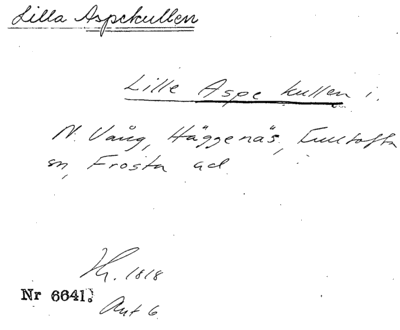 Lilla Aspekullen
Lille Aspe kullen i.
N. Vång, Häggenäs, Fulltofta
sn, Frosta ad
Nr 6641.
1818